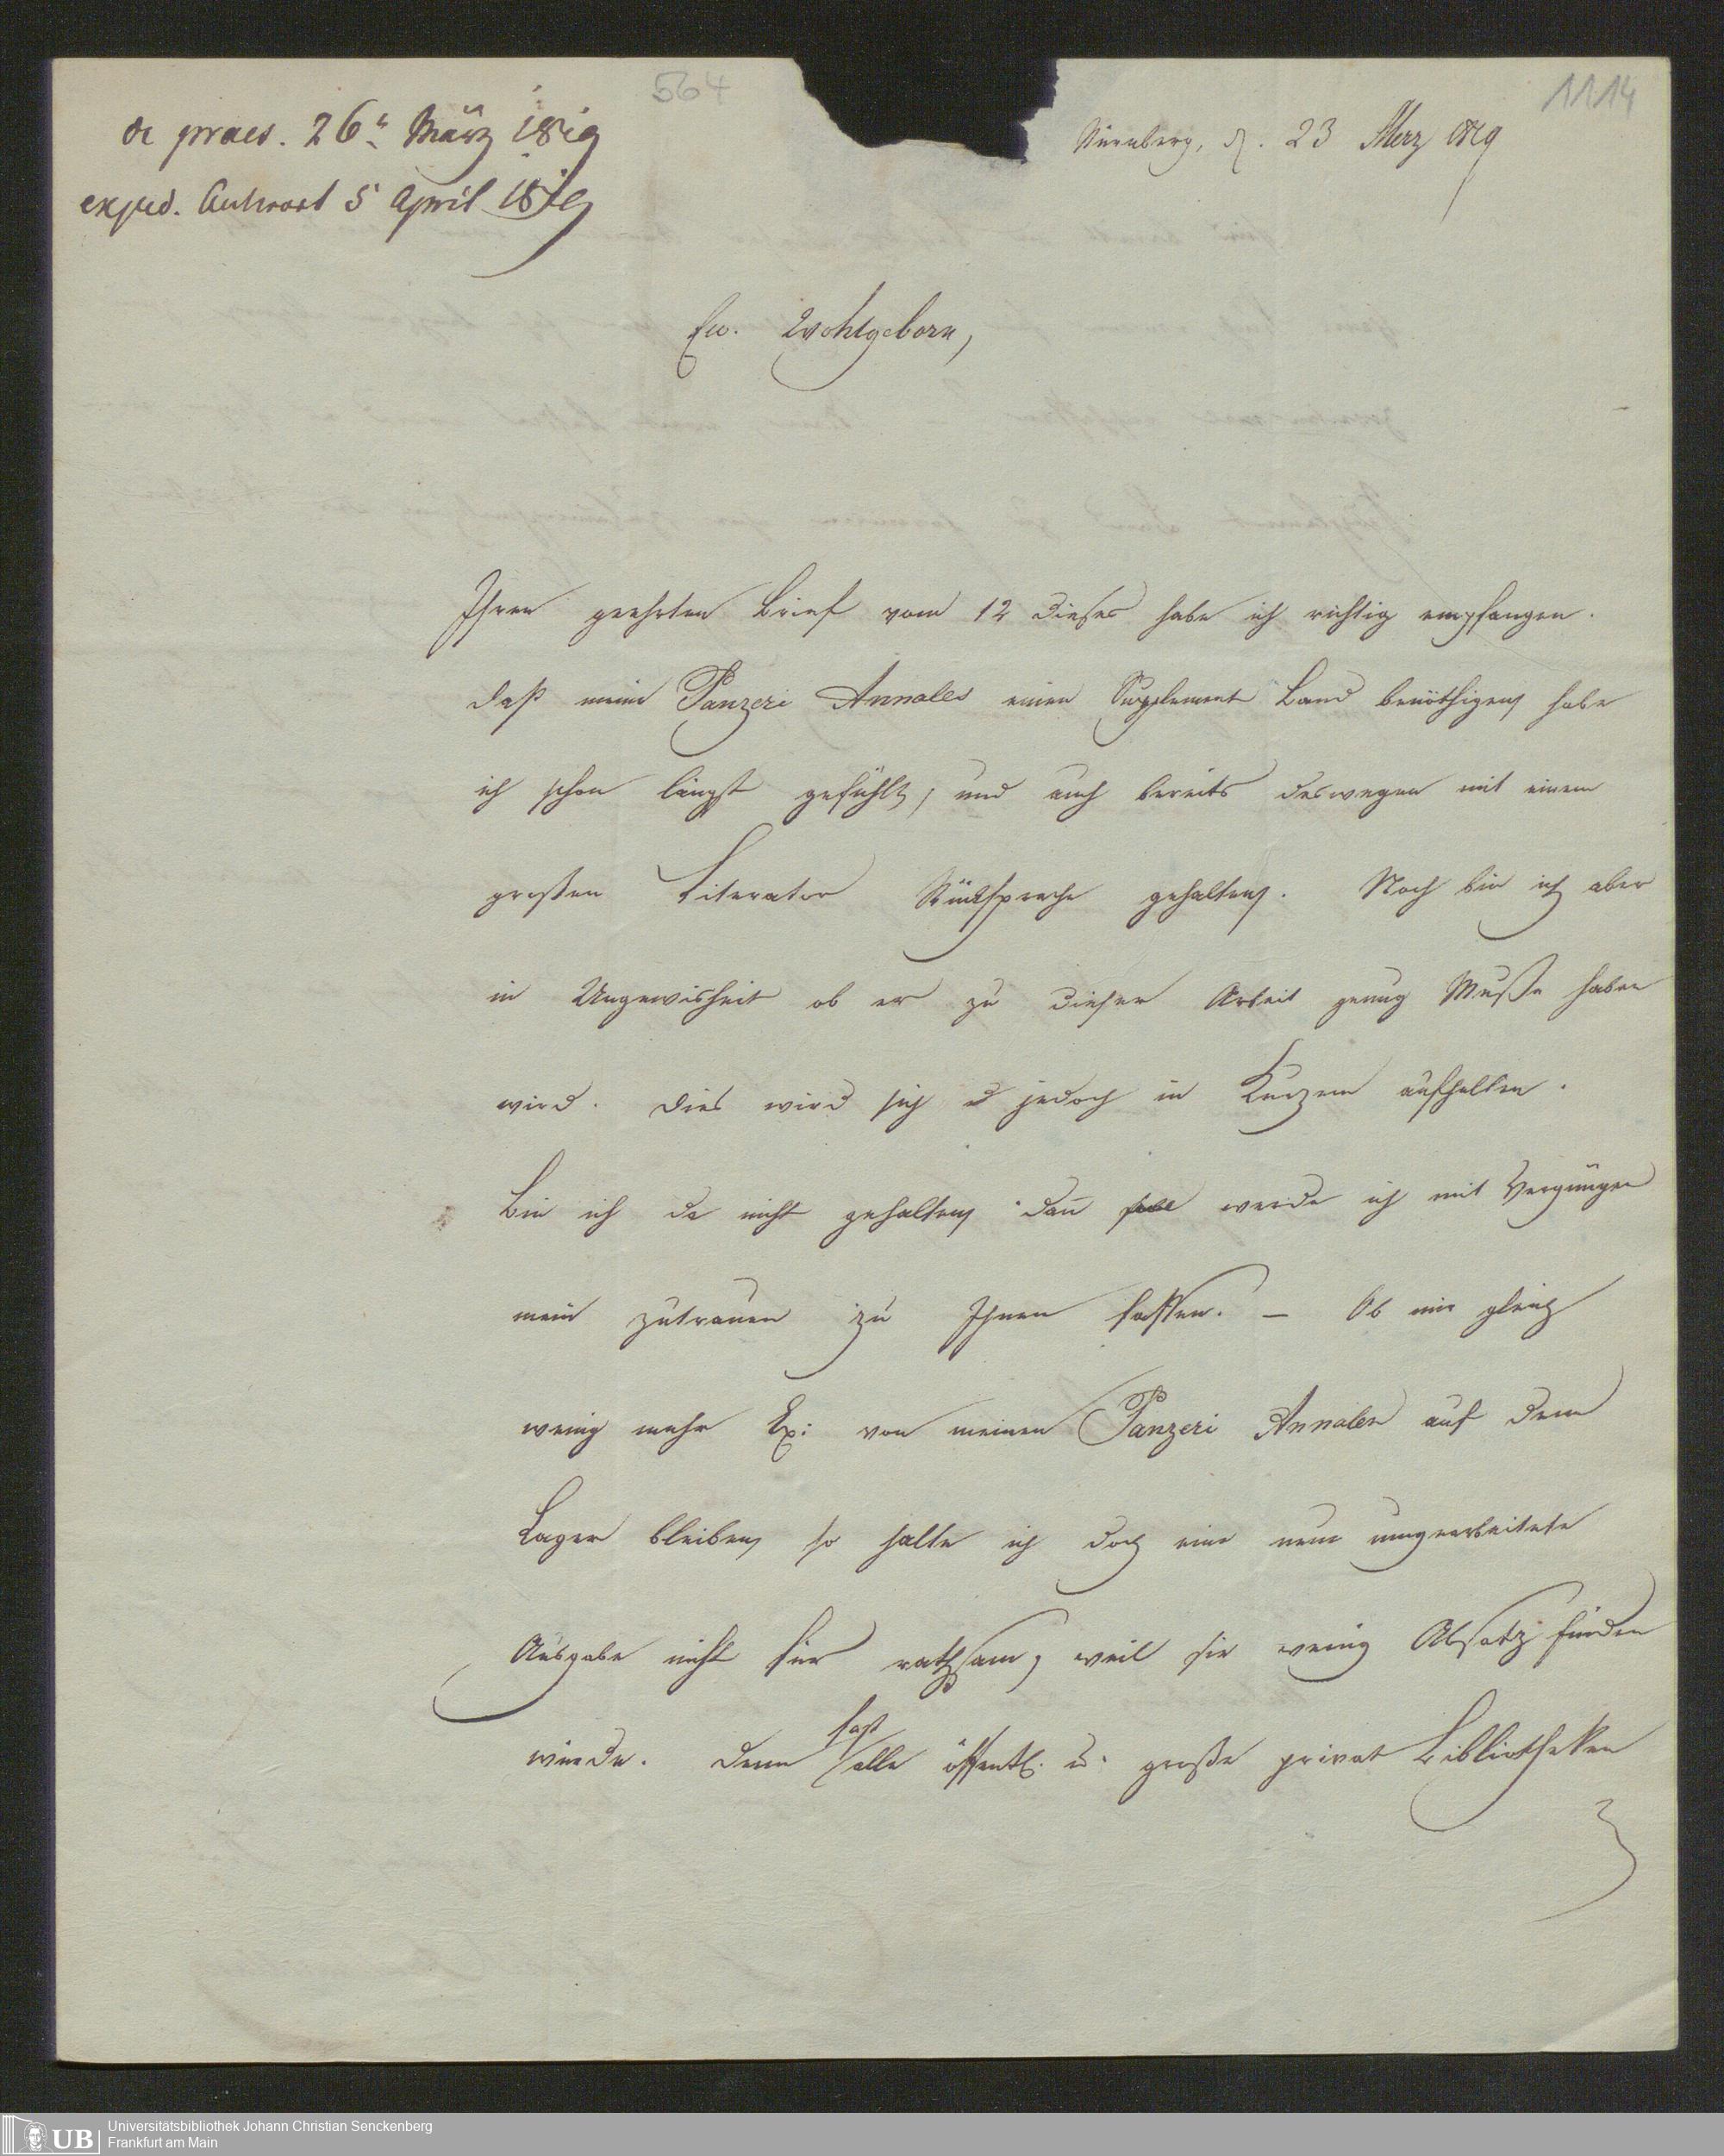 564
1114
de praes. 26n März 1819
exped. Antwort 5 April 1819
Nürnberg, d. 23 Merz 1819
Ew. Wohlgeborn,
Ihren geehrten Brief vom 12 dieses habe ich richtig empfangen.
daß meine Panzeri Annales einen Supplement Band benöthigen habe
ich schon längst gefühlt, und auch bereits deswegen mit einem
großen Literator Rücksprache gehalten. Noch bin ich aber
in Ungewisheit ob er zu dieser Arbeit genug Muße haben
wird. Dies wird sich jedoch in Kurzem aufhellen.
Bin ich da nicht gehalten dan̄ werde ich mit Vergnügen
mein zutrauen zu Ihnen fassen. – Ob mir gleich
wenig mehr Ex: von meinen Panzeri Annalen auf dem
Lager bleiben, so halte ich doch eine neue umgearbeitete
Ausgabe nicht für rathsam, weil sie wenig Absatz finden
würde. denn fast alle öffentl. u. große privat Bibliotheken
UB Universitätsbibliothek Johann Christian Senckenberg
Frankfurt am Main